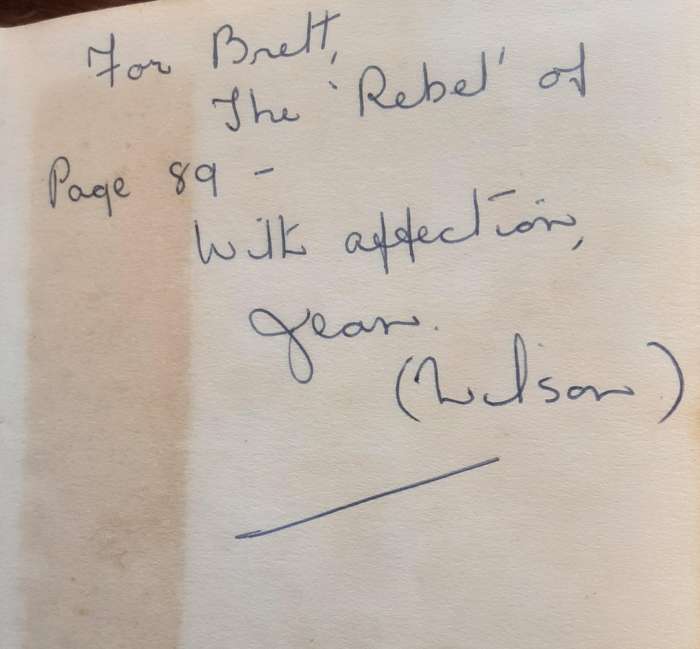 For Brett,
The 'Rebel' of
Page 89 -
With affection,
Jean.
(Wilson)